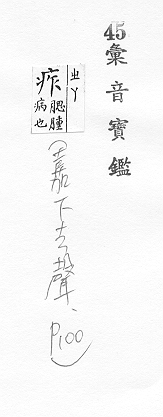 45
彙音寶鑑
痄
ㄓㄚ
腮腫
病也
(嘉下去聲、P100)